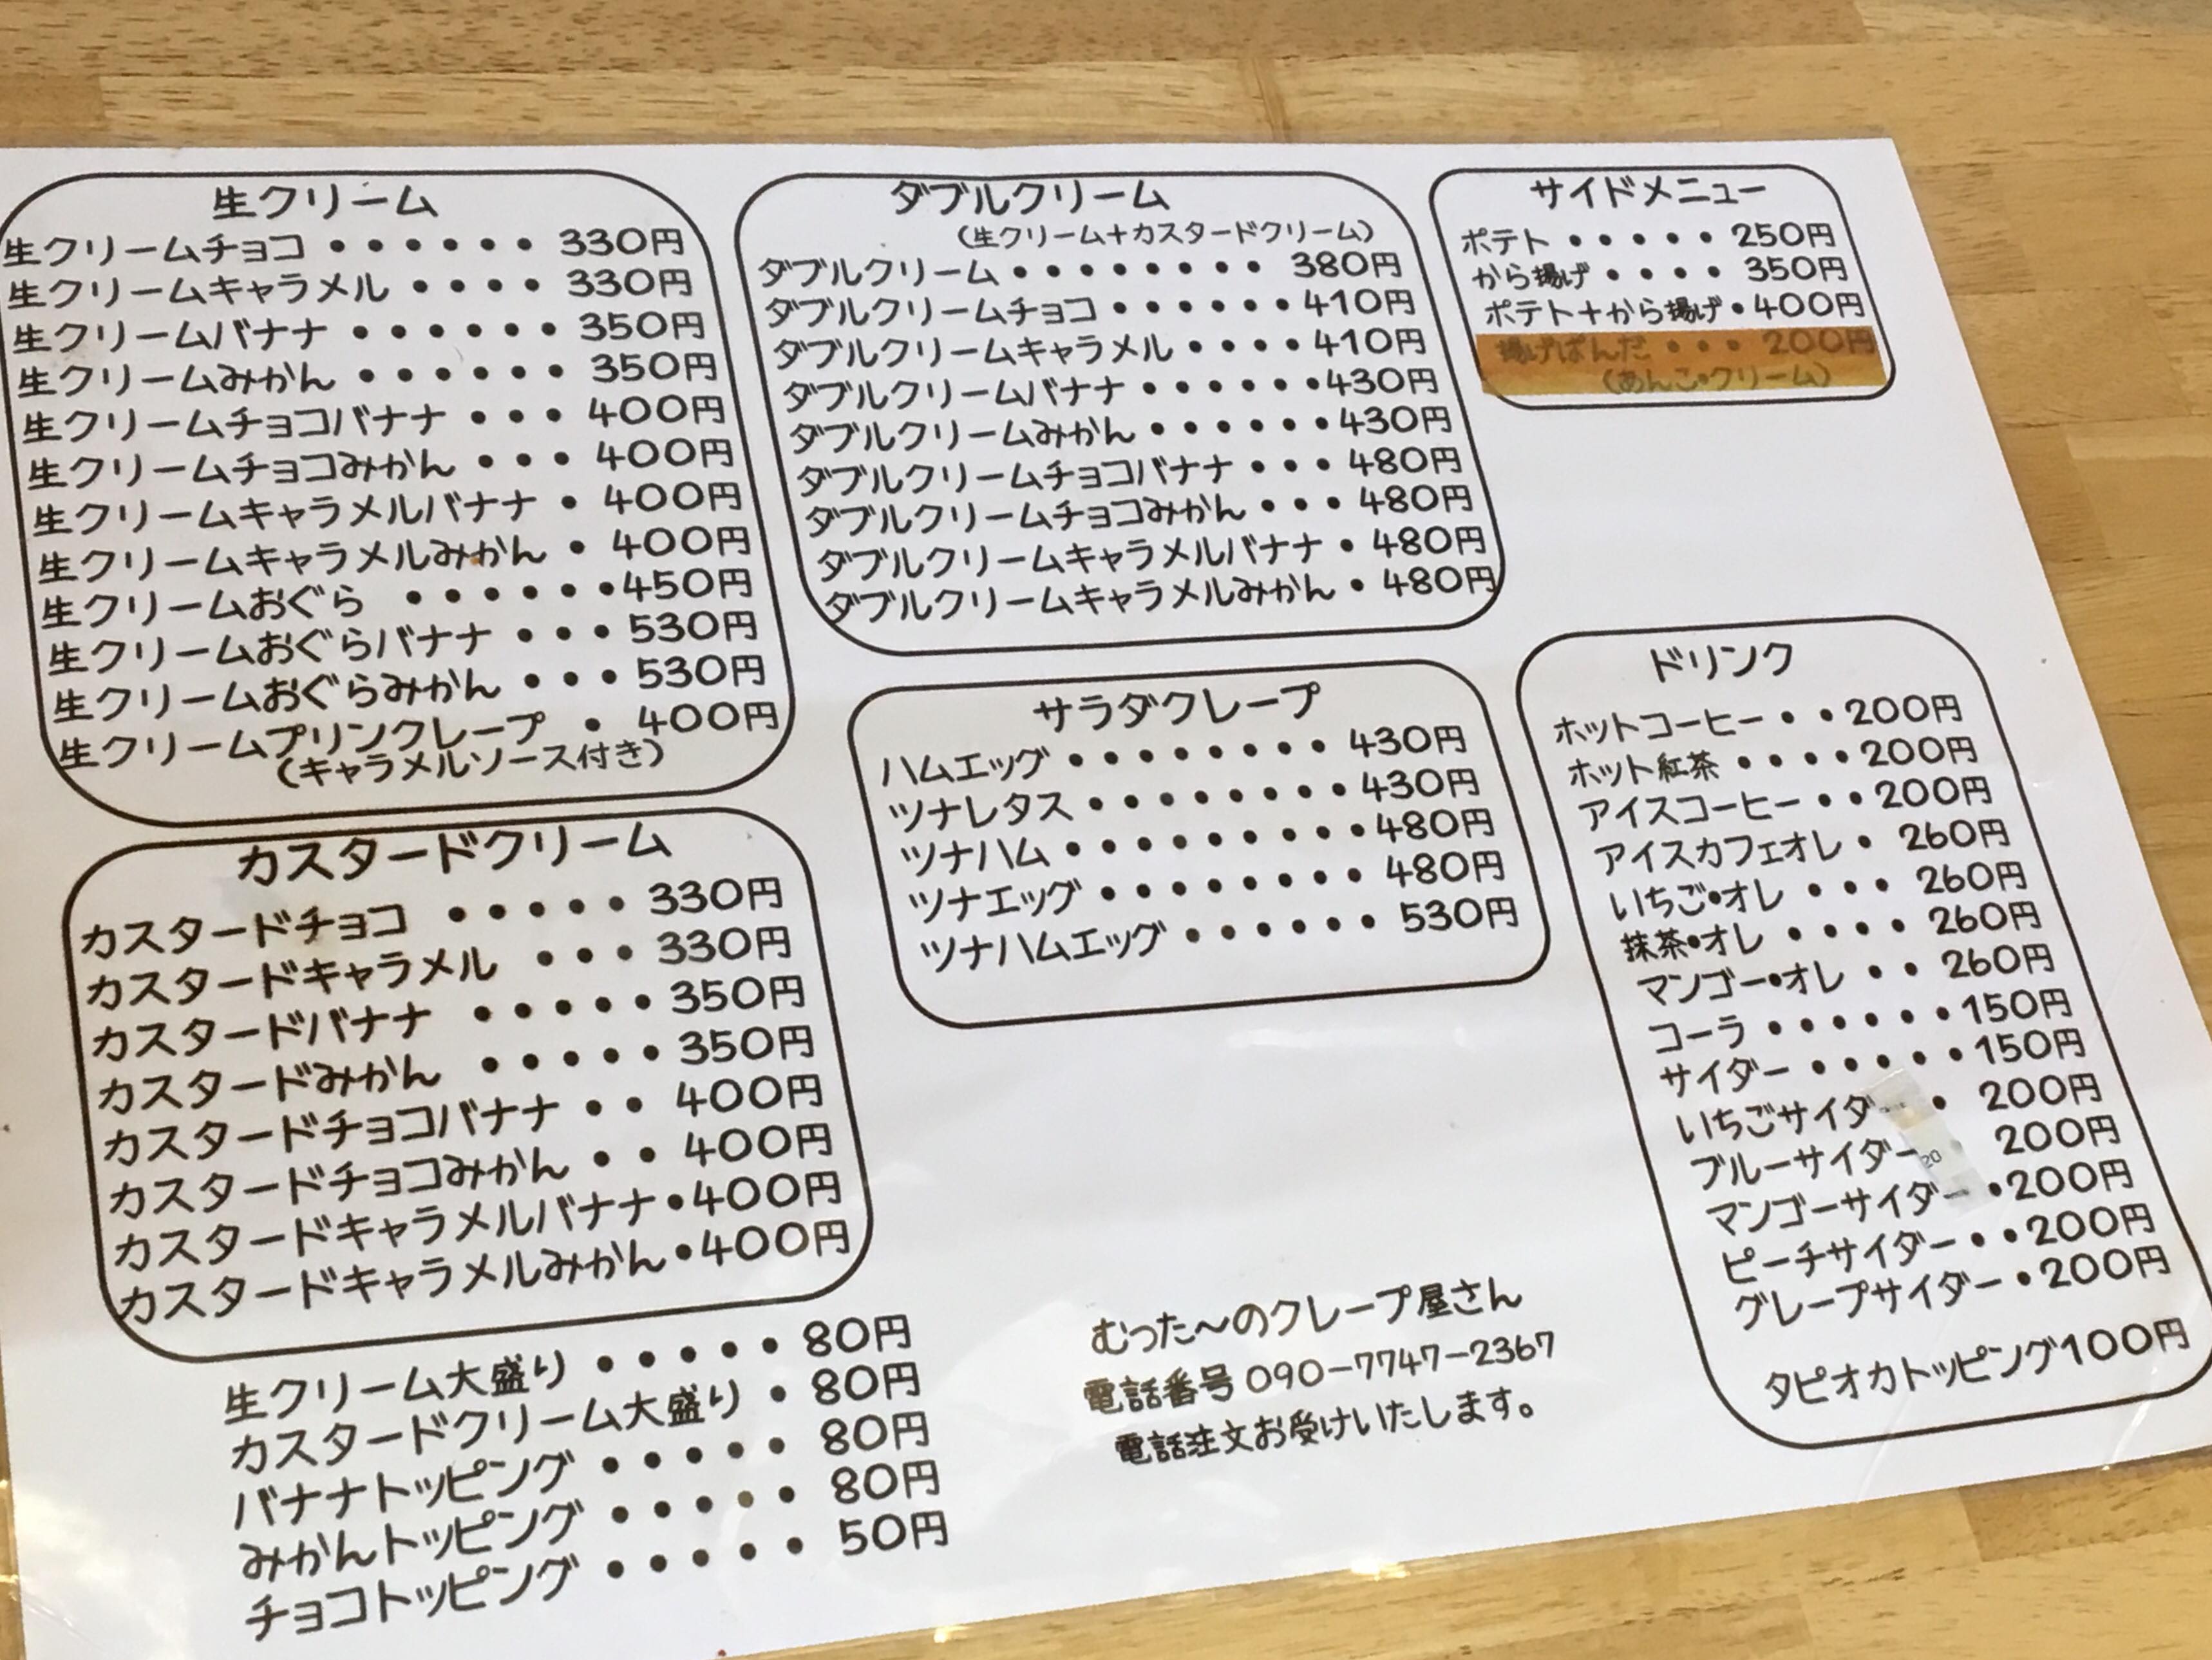 生クリーム
生クリームチョコ・・・・・・330円
生クリームキャラメル・・・・330円
生クリームバナナ・・・・・・350円
生クリームみかん・・・・・・350円
生クリームチョコバナナ・・・400円
生クリームチョコみかん・・・400円
生クリームキャラメルバナナ・400円
生クリームキャラメルみかん・400円
生クリームおぐら・・・・・・450円
生クリームおぐらバナナ・・・530円
生クリームおぐらみかん・・・530円
生クリームプリンクレープ・400円
(キャラメルソース付き)
カスタードクリーム
カスタードチョコ・・・・・330円
カスタードキャラメル・・・330円
カスタードバナナ・・・・・350円
カスタードみかん・・・・・350円
カスタードチョコバナナ・・400円
カスタードチョコみかん・・400円
カスタードキャラメルバナナ・400円
カスタードキャラメルみかん・400円
生クリーム大盛り・・・・・80円
カスタードクリーム大盛り・80円
バナナトッピング・・・・・80円
みかんトッピング・・・・・80円
チョコトッピング・・・・・50円
ダブルクリーム
(生クリーム+カスタードクリーム)
ダブルクリーム・・・・・・・・380円
ダブルクリームチョコ・・・・・・410円
ダブルクリームキャラメル・・・・410円
ダブルクリームバナナ・・・・・・430円
ダブルクリームみかん・・・・・・430円
ダブルクリームチョコバナナ・・・480円
ダブルクリームチョコみかん・・・480円
ダブルクリームキャラメルバナナ・480円
ダブルクリームキャラメルみかん・480円
サラダクレープ
ハムエッグ・・・・・・・・430円
ツナレタス・・・・・・・・430円
ツナハム・・・・・・・・・480円
ツナエッグ・・・・・・・・480円
ツナハムエッグ・・・・・・530円
むった〜のクレープ屋さん
電話番号 090-7747-2367
電話注文お受けいたします。
サイドメニュー
ポテト・・・・・250円
から揚げ・・・・350円
ポテト+から揚げ・400円
揚げぱんだ・・・200円
(あんこ・クリーム)
ドリンク
ホットコーヒー・・200円
ホット紅茶・・・・200円
アイスコーヒー・・200円
アイスカフェオレ・260円
いちご・オレ・・・260円
抹茶・オレ・・・・260円
マンゴー・オレ・・260円
コーラ・・・・・・150円
サイダー・・・・・150円
いちごサイダー・・200円
ブルーサイダー 200円
マンゴーサイダー・200円
ピーチサイダー・・200円
グレープサイダー・200円
タピオカトッピング100円